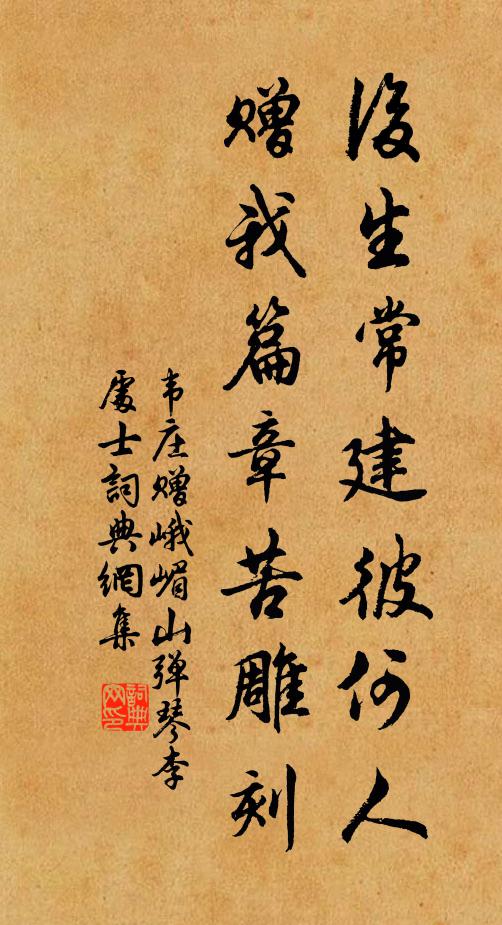 後生常建彼何人
贈我篇章苦雕刻
韦庄赠峨嵋山弹琴李
處士詞典網集
詞典网印